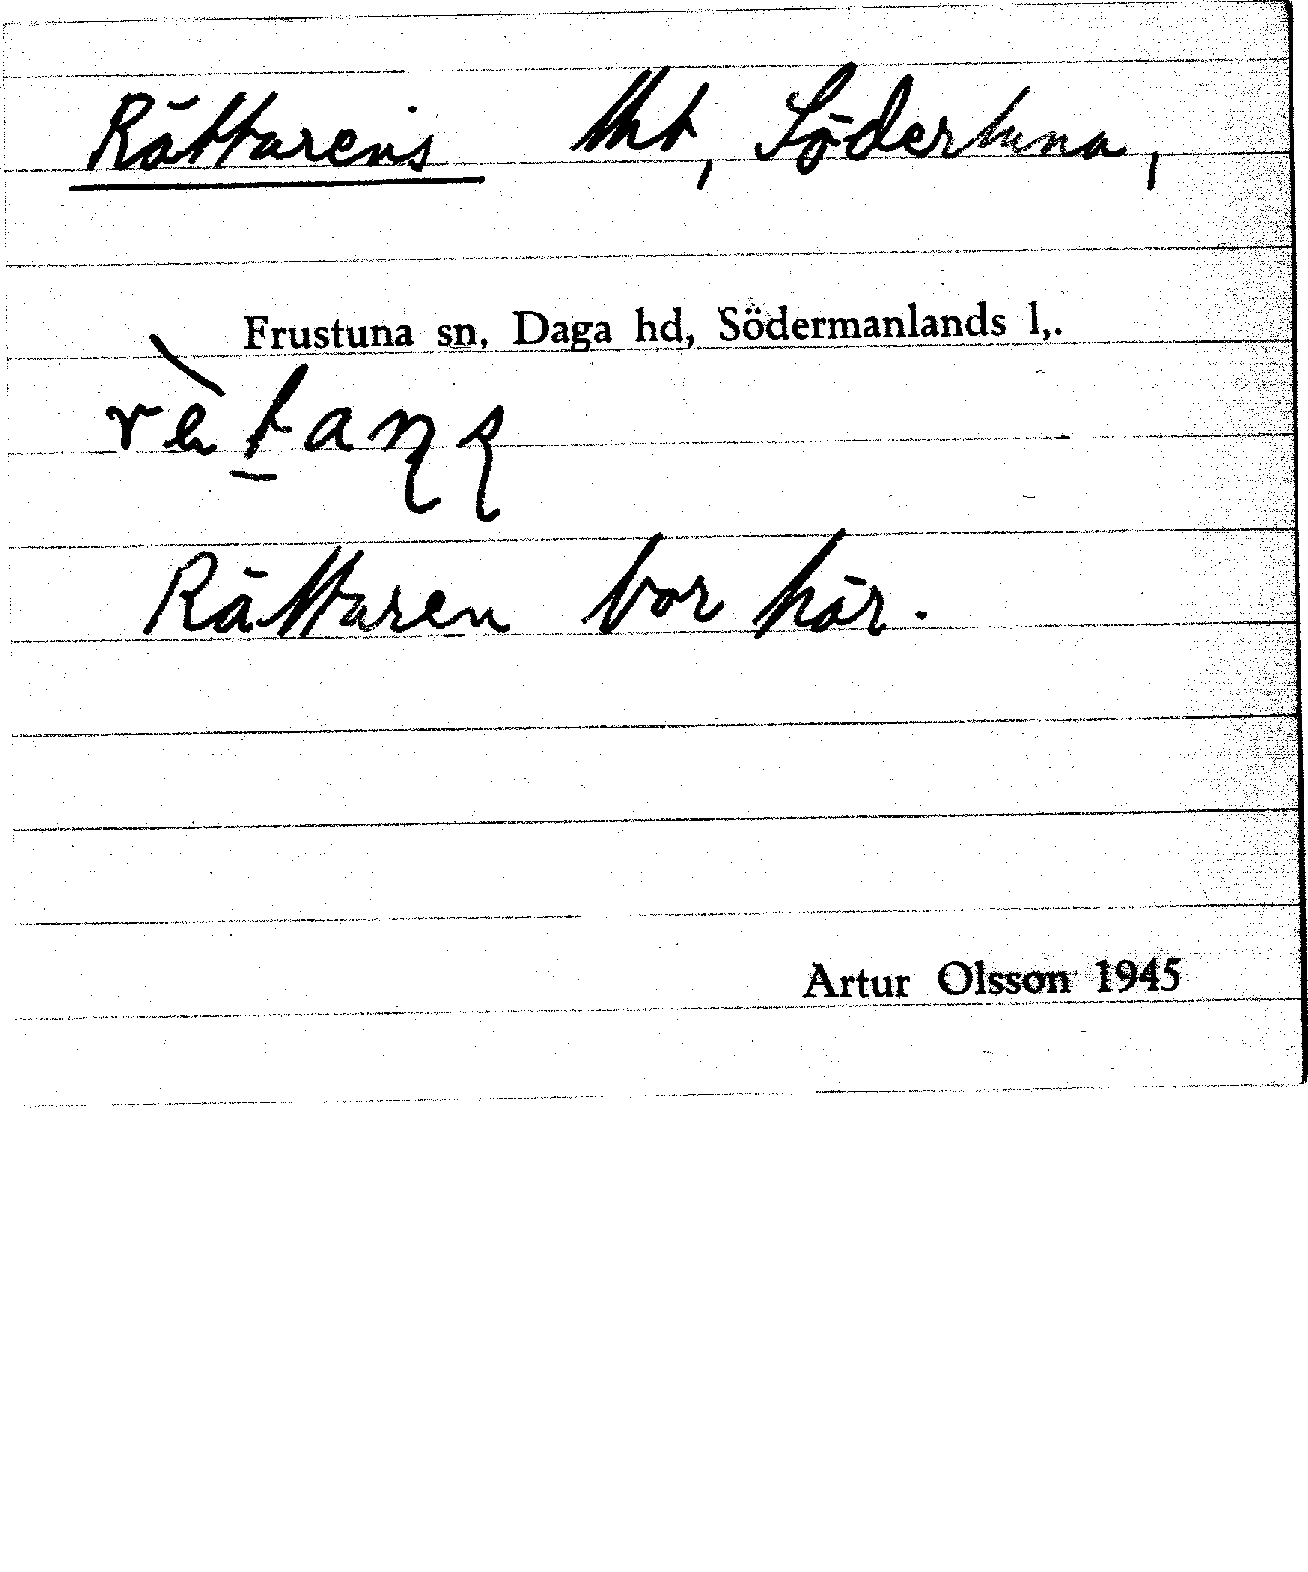 Rättarens tht, Södertuna,
Frustuna sn, Daga hd, Södermanlands l,.
rètaɳʂ
Rättaren bor här.
Artur Olsson 1945